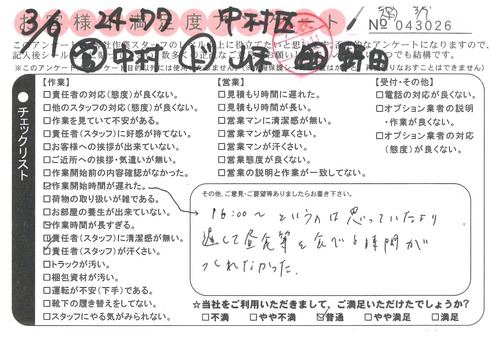 お客様満足度アンケート!
3/9 24-72 中村区
No 043026
中村
【作業】
□責任者の対応(態度)が良くない。
□他のスタッフの対応(態度)が良くない。
□作業を見ていて不安がある。
□責任者(スタッフ)に好感が持てない。
□お客様への挨拶が出来ていない。
□ご近所への挨拶・気遣いが無い。
□作業開始前の内容確認がなかった。
☑作業開始時間が遅れた。
□荷物の取り扱いが雑である。
□お部屋の養生が出来ていない。
□作業時間が長すぎる。
☑責任者(スタッフ)に清潔感が無い。
□責任者(スタッフ)が汗くさい。
□トラックが汚い。
□梱包資材が汚い。
□運転が不安(下手)である。
□靴下の履き替えをしてない。
□スタッフにやる気がみられない。
チェックリスト
【営業】
□見積もりが遅れた。
□見積もり時間に遅れた。
□見積もり時間が長い。
□営業マンに清潔感が無い。
□営業マンが煙草くさい。
□営業マンが汗くさい。
□営業態度が良くない。
□営業の説明と作業が一致してない。
【受付・その他】
□電話の対応が良くない。
□オプション業者の説明
・作業が良くない。
□オプション業者の対応
(態度)が良くない。
その他、ご意見・ご要望等ありましたらお書き下さい。
16:00〜というのは思っていたより
遅くて昼食等を食べる時間が
つくれなかった.
☆当社をご利用いただきまして、ご満足いただけたでしょうか?
□不満 □やや不満 ☑普通 □やや満足 □満足